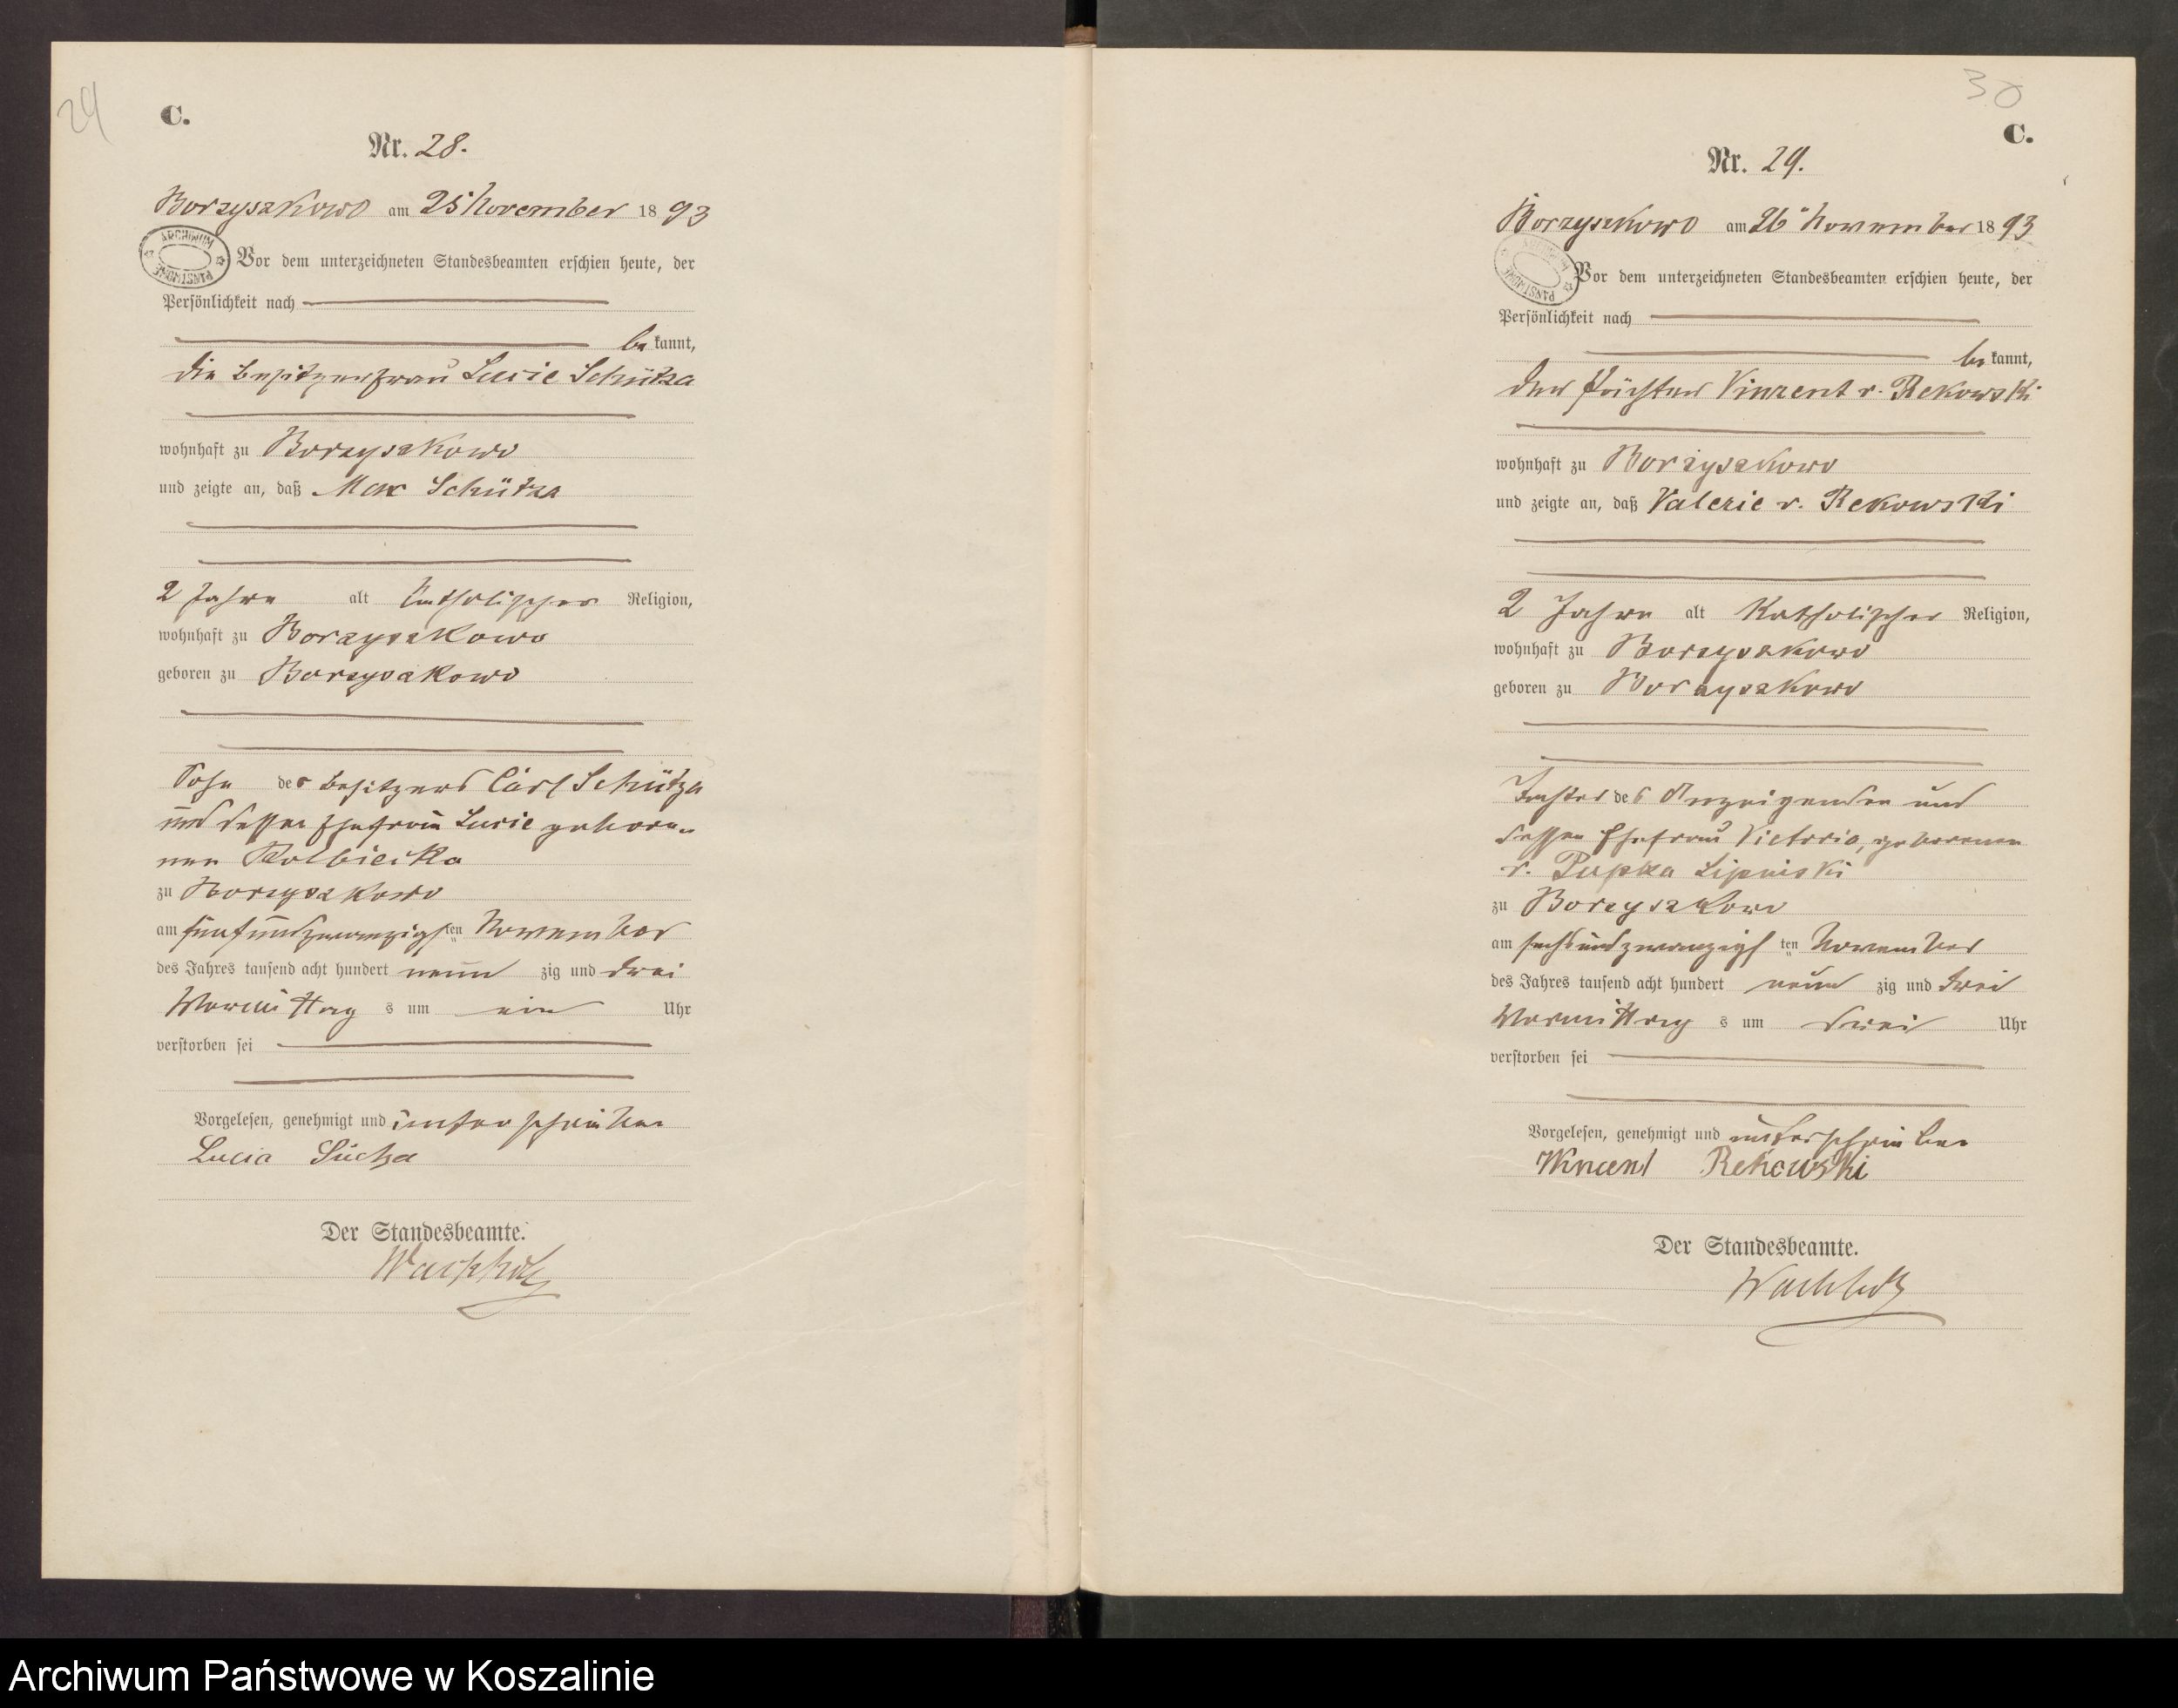 29
C.
Nr. 28.
Borzyszkowo am 25 November 1893
ARCHIWUM PAŃSTWOWE
Vor dem unterzeichneten Standesbeamten erschien heute, der
Persönlichkeit nach
be kannt,
die Besitzerfrau Lucie Schütza
wohnhaft zu Borzyszkowo
und zeigte an, daß Max Schütza
2 Jahre alt katholischer Religion,
wohnhaft zu Borzyszkowo
geboren zu Borzyszkowo
Sohn des Besitzers Carl Schütza
und dessen Ehefrau Lucie gebore-
nen Kolbiecka
zu Borzyszkowo
am fünfundzwanzigsten November
des Jahres tausend acht hundert neun zig und drei
Vormittag s um ein Uhr
verstorben sei
Vorgelesen, genehmigt und unterschrieben
Lucia
Der Standesbeamte.
Wachholz
30
C.
Nr. 29.
Borzyszkowo am 26 November 1893
ARCHIWUM PAŃSTWOWE
Vor dem unterzeichneten Standesbeamten erschien heute, der
Persönlichkeit nach
be kannt,
der Pächter Vinzent v. Rekowski
wohnhaft zu Borzyszkowo
und zeigte an, daß Valerie v. Rekowski
2 Jahre alt katholischer Religion,
wohnhaft zu Borzyszkowo
geboren zu Borzyszkowo
Tochter des Anzeigenden und
dessen Ehefrau Victoria, geborenen
v. Pupka Lipinski
zu Borzyszkowo
am sechsundzwanzigsten November
des Jahres tausend acht hundert neun zig und drei
Vormittag s um drei Uhr
verstorben sei
Vorgelesen, genehmigt und unterschrieben
Wincent Rekowski
Der Standesbeamte.
Wachholz
Archiwum Państwowe w Koszalinie